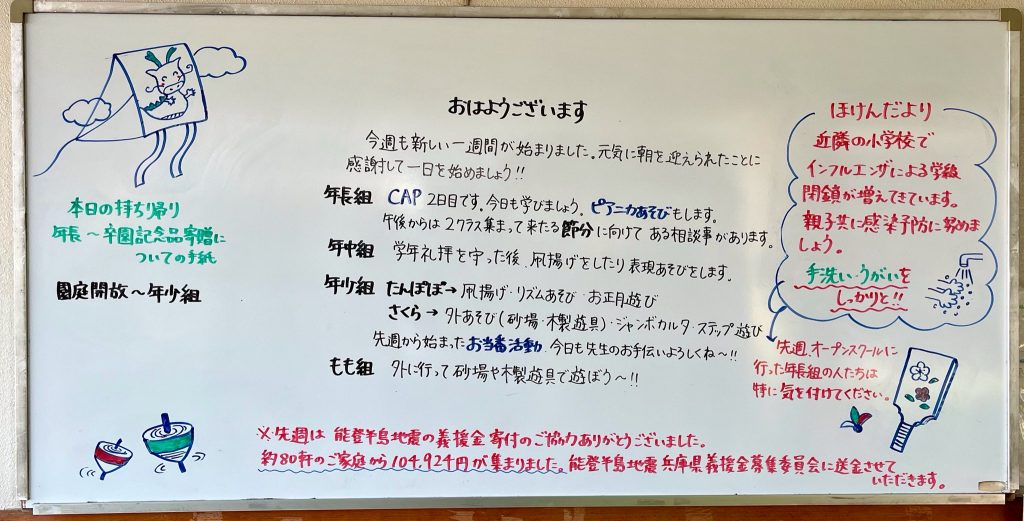 おはようございます
今週も新しい一週間が始まりました。元気に朝を迎えられたことに
感謝して一日を始めましょう!!
年長組 CAP 2日目です。今日も学びましょう。ピアニカあそびもします。
午後からは2クラス集まって来たる節分に向けて ある相談事があります。
年中組 学年礼拝を守った後、凧揚げをしたり表現あそびをします。
年少組 たんぽぽ→凧揚げ・リズムあそび・お正月遊び
さくら→外あそび(砂場・木製遊具)・ジャンボカルタ・ステップ遊び
先週から始まったお当番活動、今日も先生のお手伝いよろしくね〜!!
もも組 外に行って砂場や木製遊具で遊ぼう〜!!
本日の持ち帰り
年長〜卒園記念品寄贈に
ついての手紙
園庭開放〜年少組
ほけんだより
近隣の小学校で
インフルエンザによる学級
閉鎖が増えてきています。
親子共に感染予防に努めま
しょう。
手洗い・うがいを
しっかりと!!
先週、オープンスクールに
行った年長組の人たちは
特に気を付けてください。
※先週は 能登半島地震の義援金寄付のご協力ありがとうございました。
約80軒のご家庭から104,924円が集まりました。能登半島地震兵庫県義援金募集委員会に送金させて
いただきます。